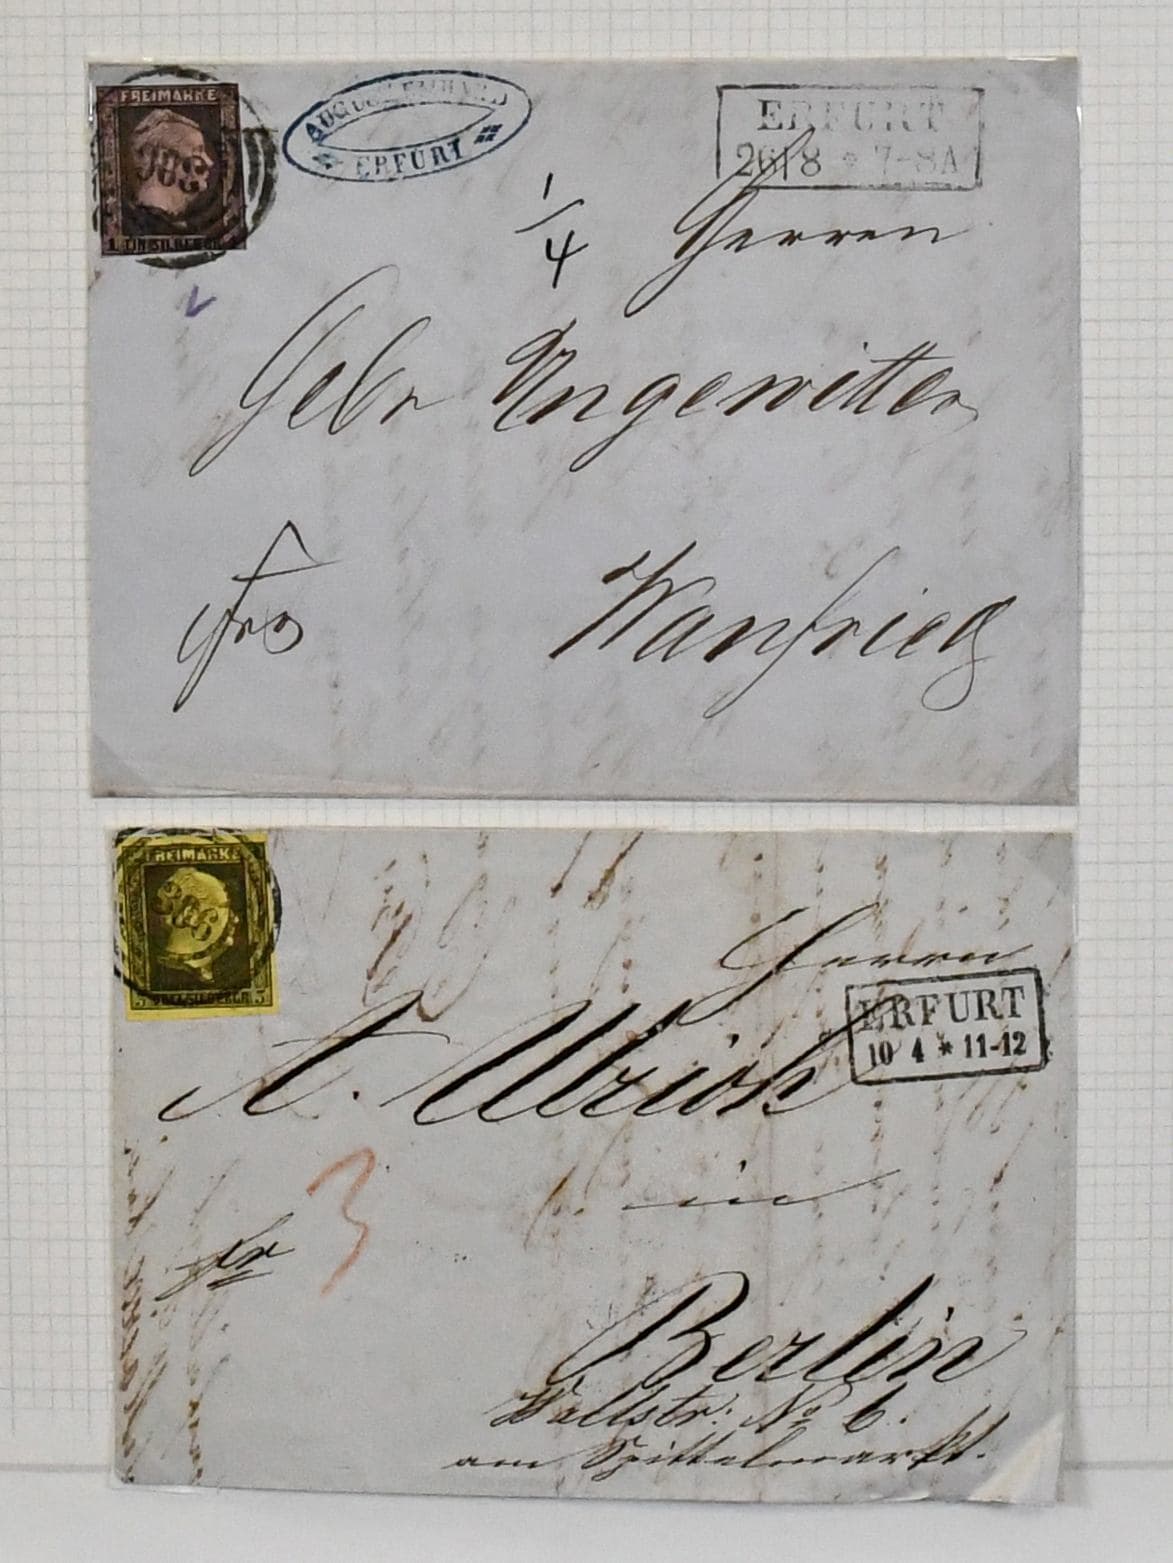 FREIMARKE
388
1 EIN SILBERGR. 1
ERFURT
ERFURT
26 8 * 7-8A
1/4
Herren
Gebr Ungewitter
fro
Wanfried
FREIMARKE
388
3 SILBERGR. 3
Herrn
ERFURT
10 4 * 11-12
A. Ulrich
3
in
fr
Berlin
Wallstr: No 6.
am Spittelmarkt.